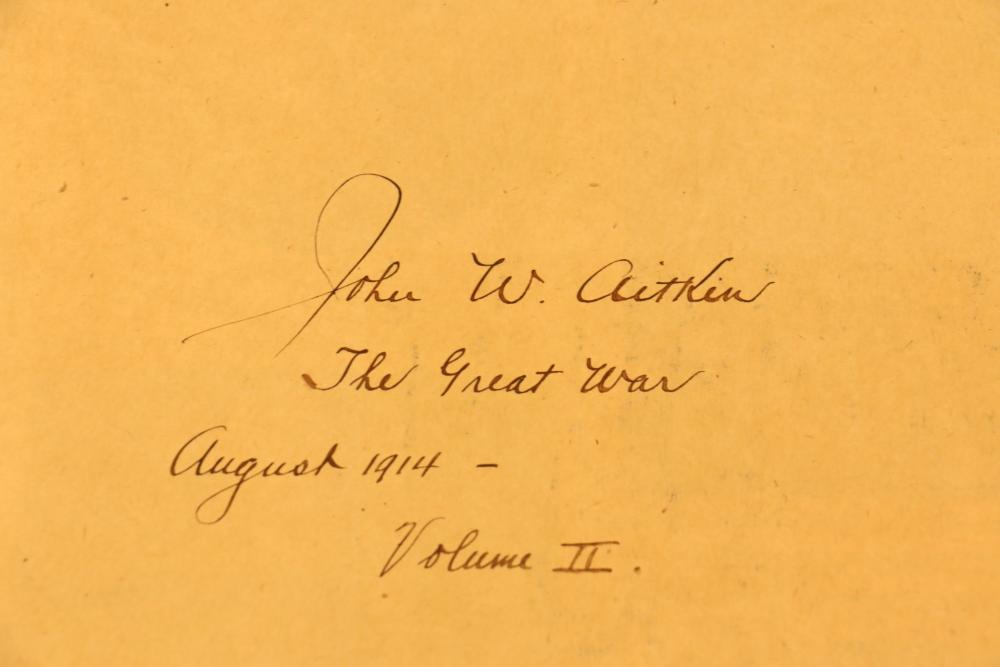 John W. Aitken
The Great War
August 1914 -
Volume II.